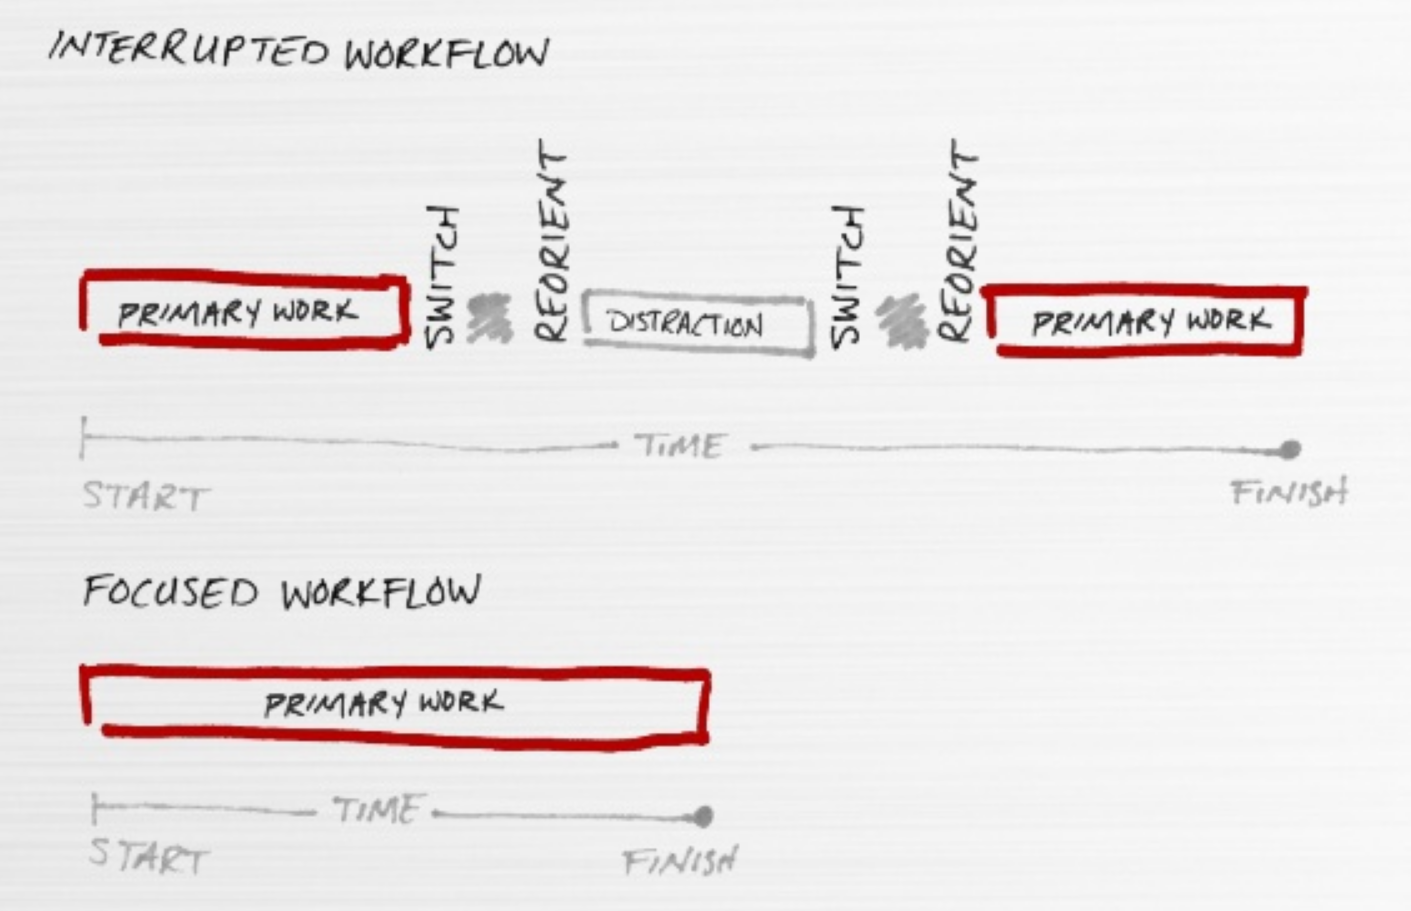 INTERRUPTED WORKFLOW
PRIMARY WORK
SWITCH
REORIENT
DISTRACTION
SWITCH
REORIENT
PRIMARY WORK
TIME
START
FINISH
FOCUSED WORKFLOW
PRIMARY WORK
TIME
START
FINISH